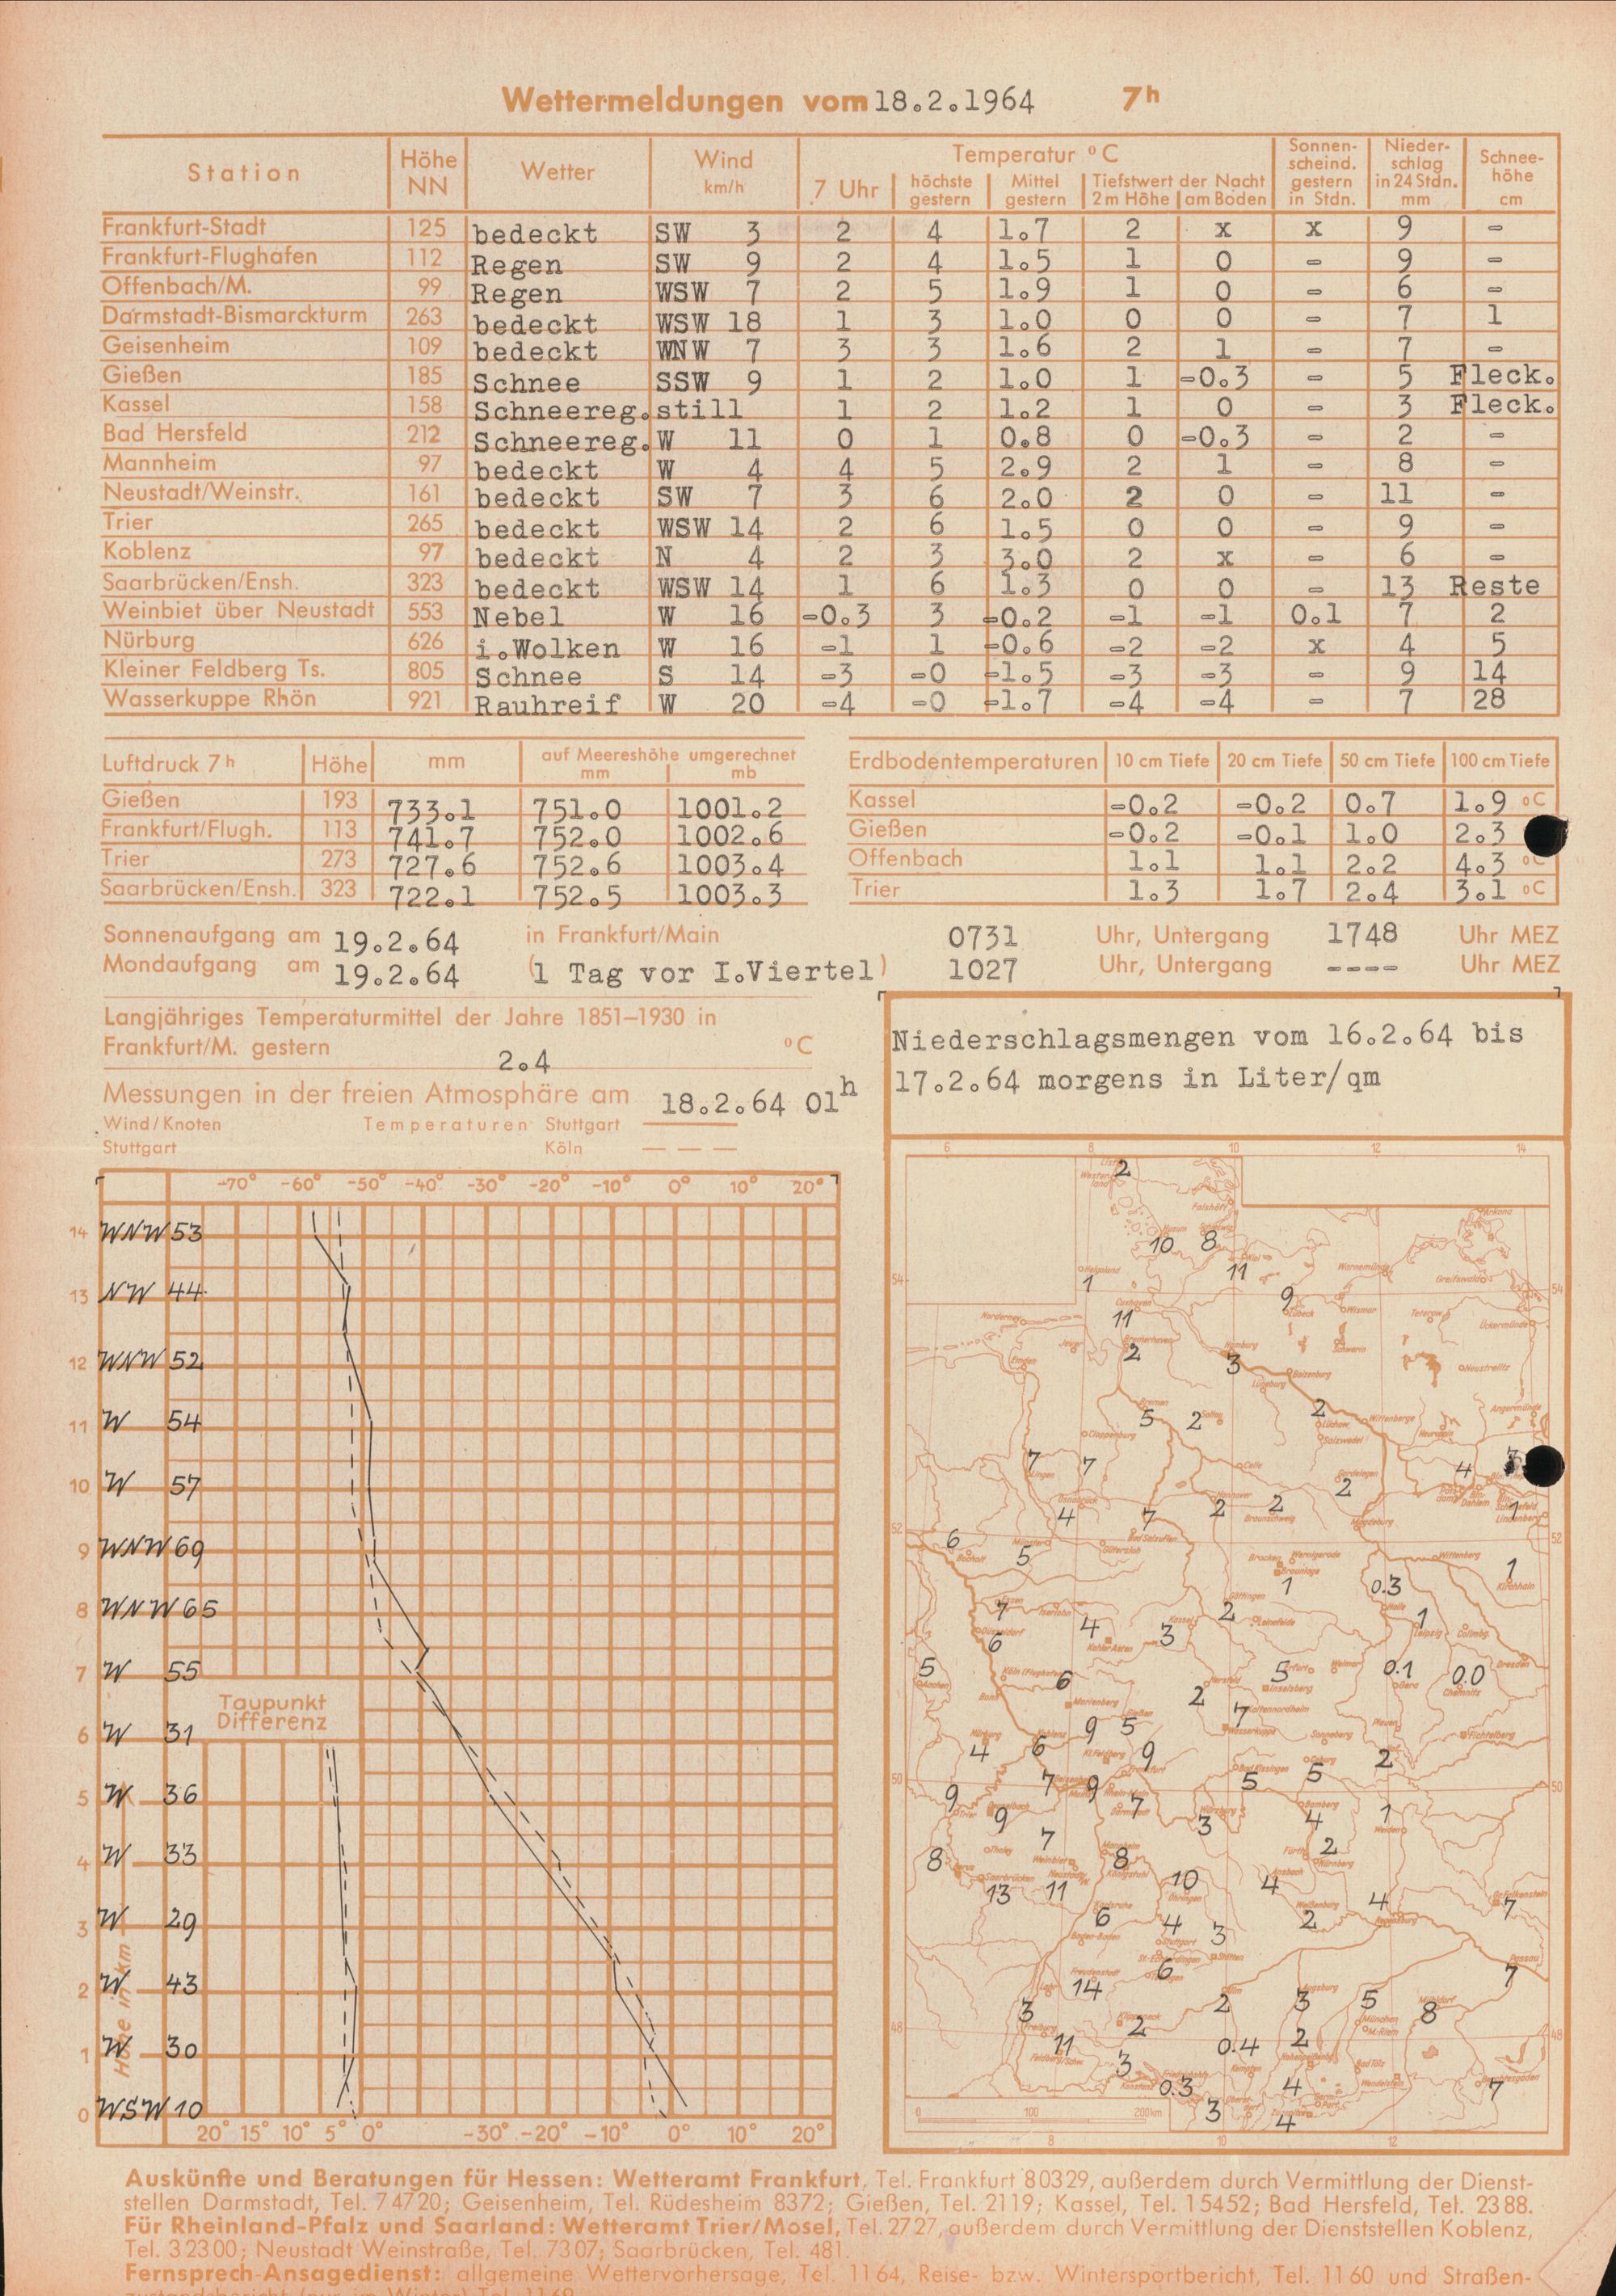 Wettermeldungen vom 18.2.1964 7h
Station Höhe NN Wetter Wind km/h Temperatur °C Sonnenscheind. gestern in Stdn. Niederschlag in 24 Stdn. mm Schneehöhe cm
7 Uhr höchste gestern Mittel gestern Tiefstwert der Nacht 2 m Höhe am Boden
Frankfurt-Stadt 125 bedeckt SW 3 2 4 1.7 2 x x 9 -
Frankfurt-Flughafen 112 Regen SW 9 2 4 1.5 1 0 - 9 -
Offenbach/M. 99 Regen WSW 7 2 5 1.9 1 0 - 6 -
Darmstadt-Bismarckturm 263 bedeckt WSW 18 1 3 1.0 0 0 - 7 1
Geisenheim 109 bedeckt WNW 7 3 3 1.6 2 1 - 7 -
Gießen 185 Schnee SSW 9 1 2 1.0 1 -0.3 - 5 Fleck.
Kassel 158 Schneereg. still 1 2 1.2 1 0 - 3 Fleck.
Bad Hersfeld 212 Schneereg. W 11 0 1 0.8 0 -0.3 - 2 -
Mannheim 97 bedeckt W 4 4 5 2.9 2 1 - 8 -
Neustadt/Weinstr. 161 bedeckt SW 7 3 6 2.0 2 0 - 11 -
Trier 265 bedeckt WSW 14 2 6 1.5 0 0 - 9 -
Koblenz 97 bedeckt N 4 2 3 3.0 2 x - 6 -
Saarbrücken/Ensh. 323 bedeckt WSW 14 1 6 1.3 0 0 - 13 Reste
Weinbiet über Neustadt 553 Nebel W 16 -0.3 3 -0.2 -1 -1 0.1 7 2
Nürburg 626 i.Wolken W 16 -1 1 -0.6 -2 -2 x 4 5
Kleiner Feldberg Ts. 805 Schnee S 14 -3 -0 -1.5 -3 -3 - 9 14
Wasserkuppe Rhön 921 Rauhreif W 20 -4 -0 -1.7 -4 -4 - 7 28
Luftdruck 7h Höhe mm auf Meereshöhe umgerechnet mm mb
Gießen 193 733.1 751.0 1001.2
Frankfurt/Flugh. 113 741.7 752.0 1002.6
Trier 273 727.6 752.6 1003.4
Saarbrücken/Ensh. 323 722.1 752.5 1003.3
Erdbodentemperaturen 10 cm Tiefe 20 cm Tiefe 50 cm Tiefe 100 cm Tiefe
Kassel -0.2 -0.2 0.7 1.9 °C
Gießen -0.2 -0.1 1.0 2.3
Offenbach 1.1 1.1 2.2 4.3 °C
Trier 1.3 1.7 2.4 3.1 °C
Sonnenaufgang am 19.2.64 in Frankfurt/Main 0731 Uhr, Untergang 1748 Uhr MEZ
Mondaufgang am 19.2.64 (1 Tag vor I.Viertel) 1027 Uhr, Untergang ---- Uhr MEZ
Langjähriges Temperaturmittel der Jahre 1851–1930 in
Frankfurt/M. gestern 2.4 °C
Messungen in der freien Atmosphäre am 18.2.64 01h
Wind/Knoten Temperaturen Stuttgart
Stuttgart Köln
-70° -60° -50° -40° -30° -20° -10° 0° 10° 20°
14 WNW 53
13 NW 44
12 WNW 52
11 W 54
10 W 57
9 WNW 69
8 WNW 65
7 W 55
Taupunkt
Differenz
6 W 31
5 W 36
4 W 33
3 W 29
2 W 43
1 W 30
0 WSW 10
Höhe in km
20° 15° 10° 5° 0° -30° -20° -10° 0° 10° 20°
Niederschlagsmengen vom 16.2.64 bis
17.2.64 morgens in Liter/qm
6 8 10 12 14
2
10 8
11
1
54 54
9
11
2
3
5 2 2
7 7 4
2
4 7 2 2
1
52 52
6 5
1 0.3 1
7 4 3 2 1
6
5 6 5 0.1 0.0
2 7
9 5
4 6 9 2
50 7 9 5 5 50
9 9 7 3 4 1
7 2
8 8
13 11 10 4
6 4 3 2 4 7
6
14 7
3 2 3 5 8
48 11 2 0.4 2 48
3 0.3 4 7
3 4
0 100 200km
8 10 12
Auskünfte und Beratungen für Hessen: Wetteramt Frankfurt, Tel. Frankfurt 80329, außerdem durch Vermittlung der Dienst-
stellen Darmstadt, Tel. 74720; Geisenheim, Tel. Rüdesheim 8372; Gießen, Tel. 2119; Kassel, Tel. 15452; Bad Hersfeld, Tel. 2388.
Für Rheinland-Pfalz und Saarland: Wetteramt Trier/Mosel, Tel. 2727, außerdem durch Vermittlung der Dienststellen Koblenz,
Tel. 32300; Neustadt Weinstraße, Tel. 7307; Saarbrücken, Tel. 481.
Fernsprech-Ansagedienst: allgemeine Wettervorhersage, Tel. 1164, Reise- bzw. Wintersportbericht, Tel. 1160 und Straßen-